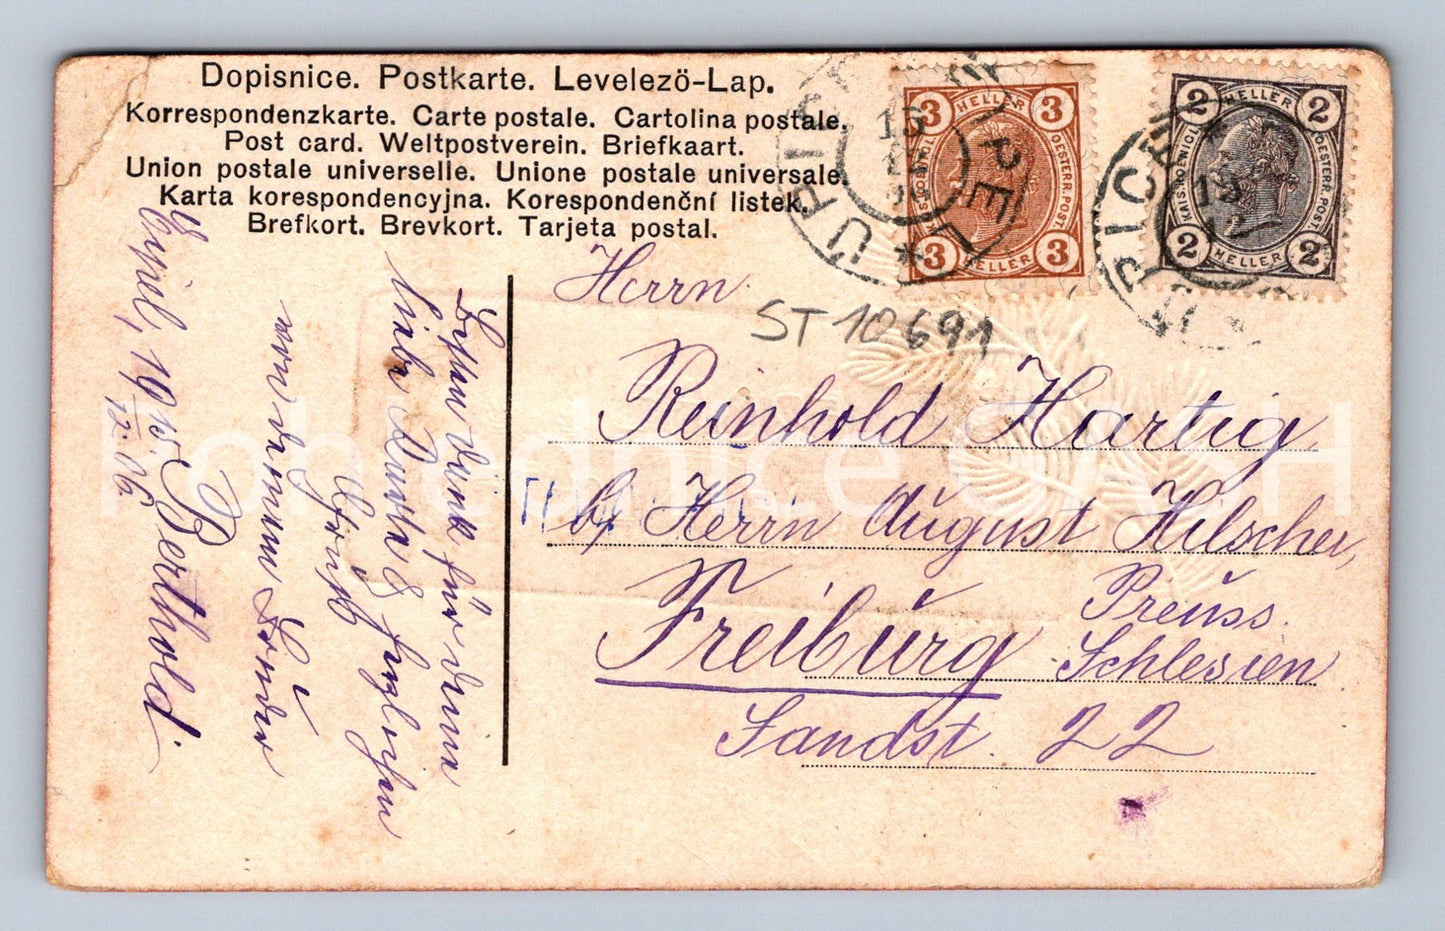 Dopisnice. Postkarte. Levelező-Lap.
Korrespondenzkarte. Carte postale. Cartolina postale.
Post card. Weltpostverein. Briefkaart.
Union postale universelle. Unione postale universale.
Karta korespondencyjna. Korespondenční listek.
Brefkort. Brevkort. Tarjeta postal.
3 HELLER 3
KAIS. KOENIGL. OESTERR. POST
3 HELLER 3
2 HELLER 2
KAIS. KOENIGL. OESTERR. POST
2 HELLER 2
ST 10691
Herrn
Reinhold Hartig
b/ Herrn August Hilscher,
Freiburg Preuss.
Schlesien
Sandst. 22
Besten Dank für deine
liebe Karte &
von deinem Bruder
Berthold.
Pohlednice CASH